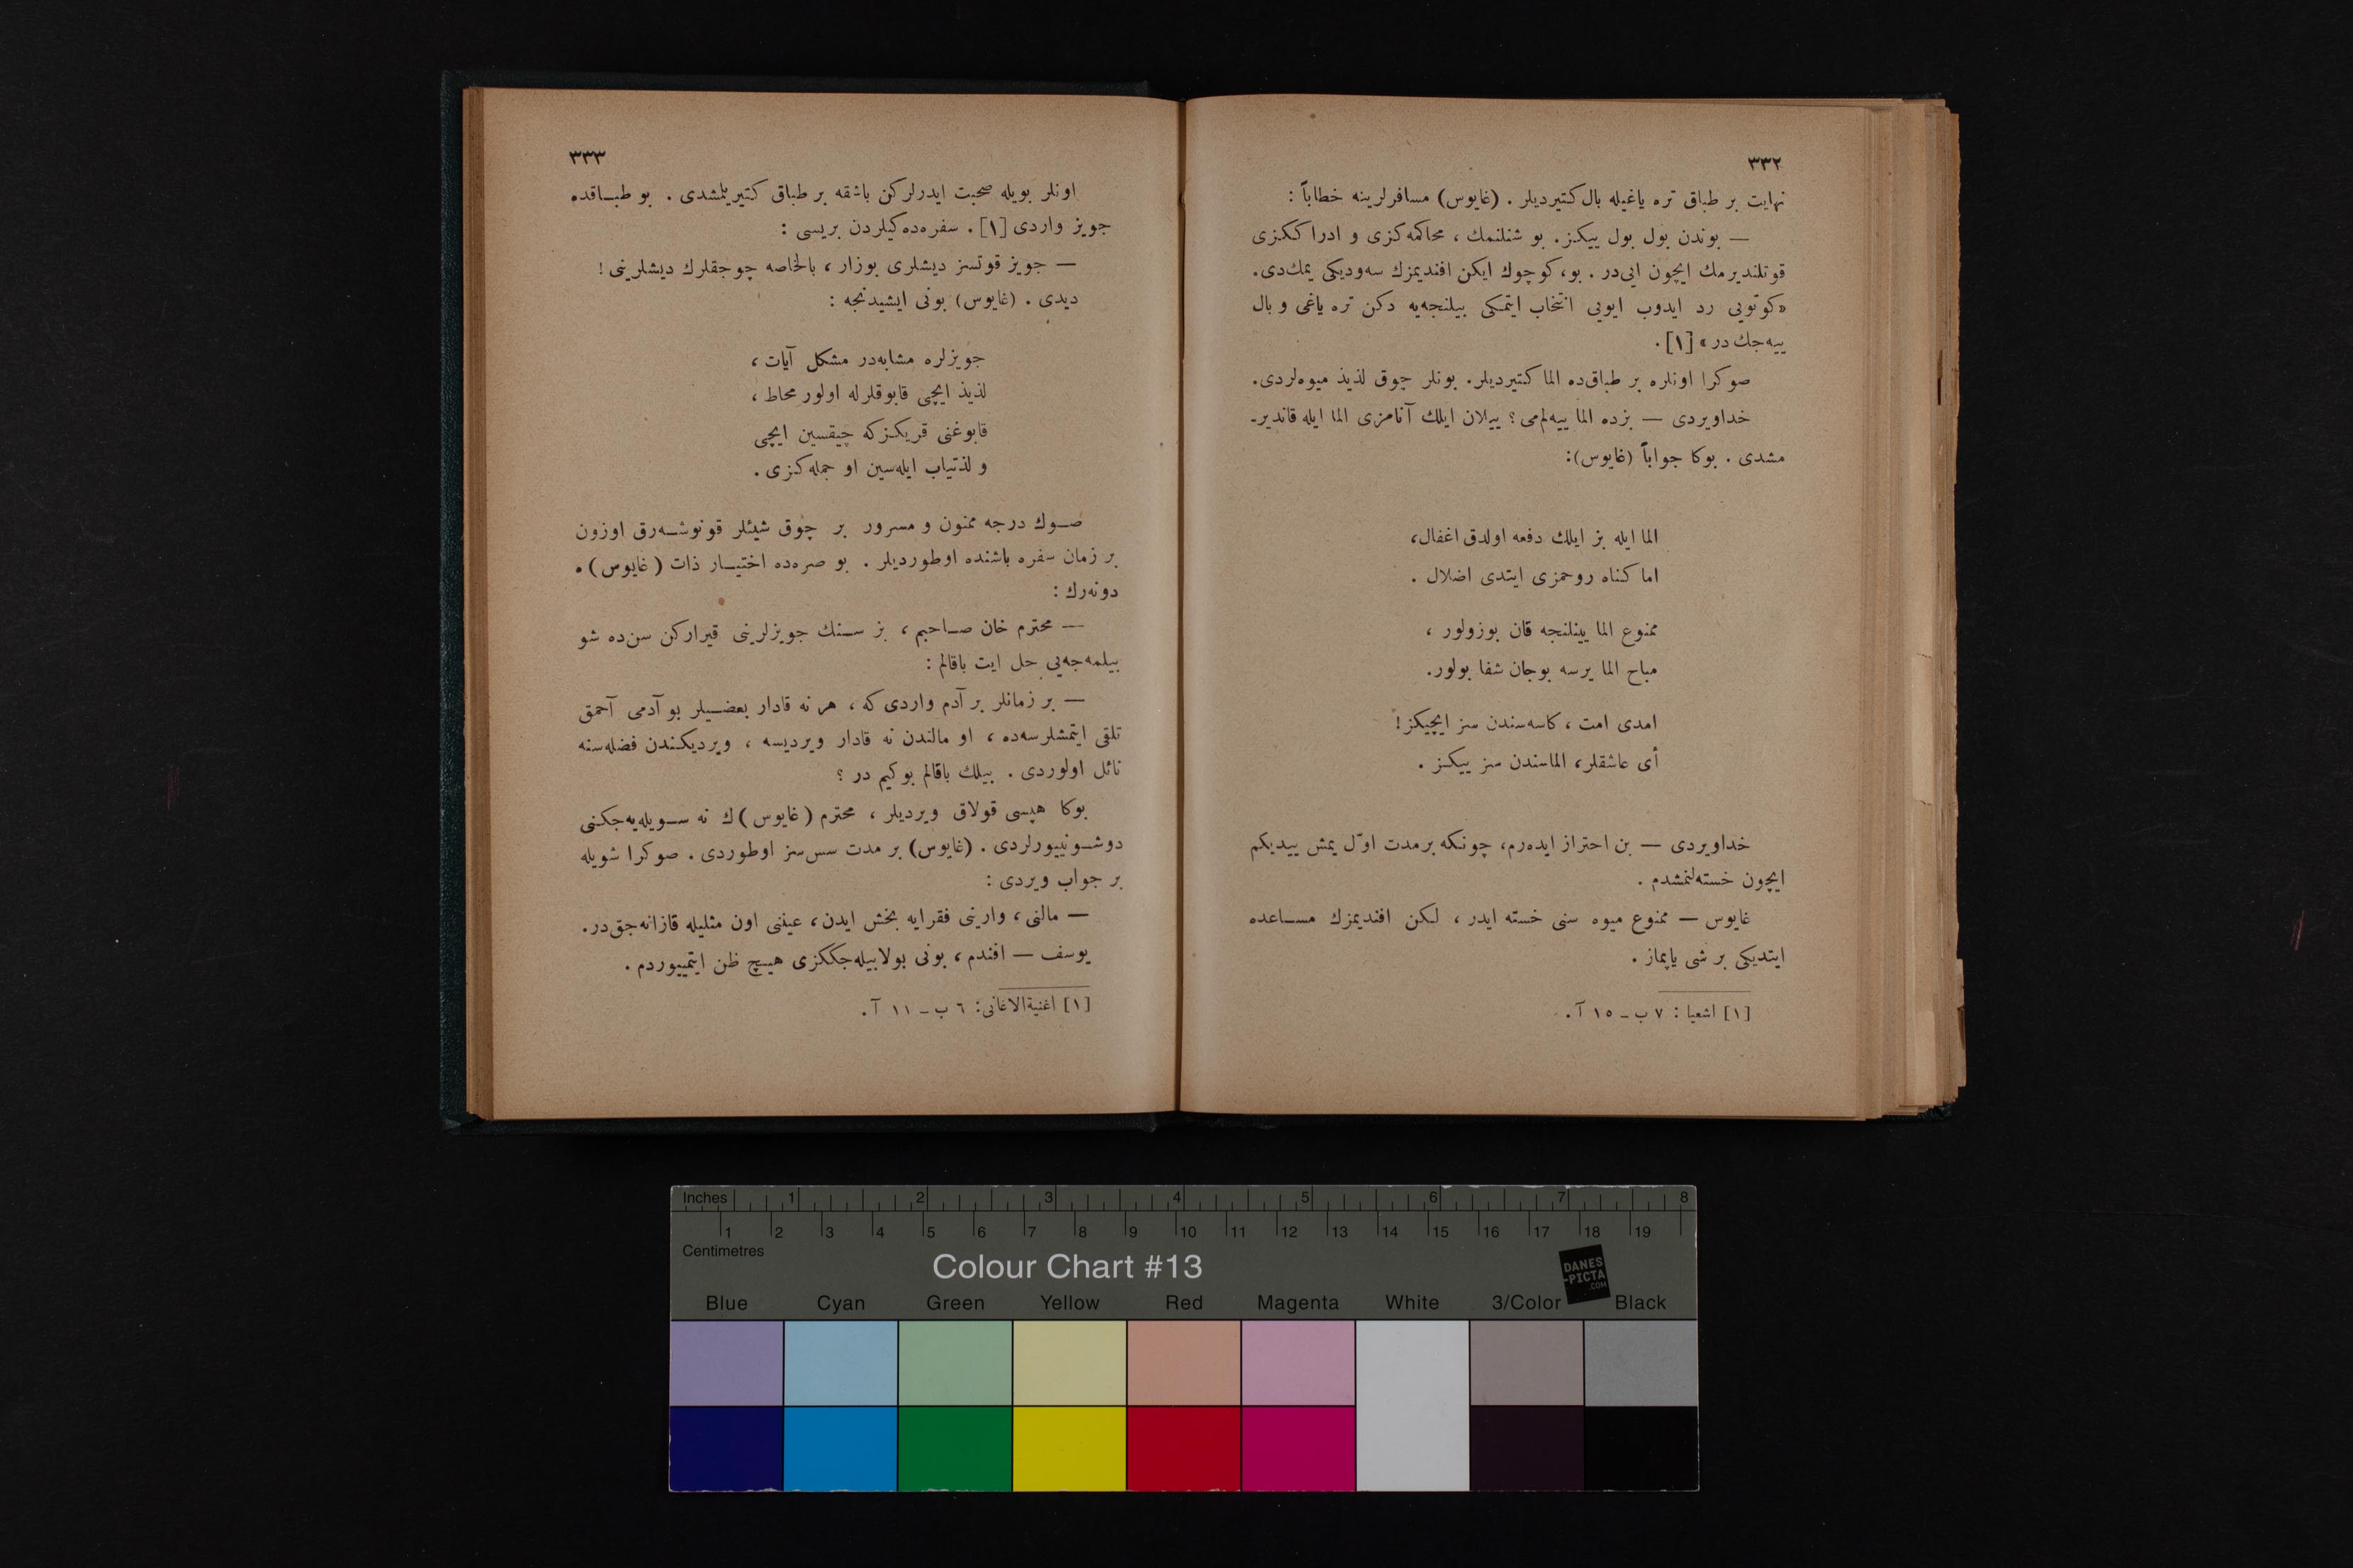 ٣٣٢
نهایت بر طباق تره یاغیله بال كتیردیلر . (غایوس) مسافرلرینه خطاباً :
— بوندن بول بول ییكز. بو شنلنمك ، محاكمه‌كزی و ادراككزی
قوتلندیرمك ایچون ایی‌در . بو، كوچوك ایكن افندیمزك سه‌ودیكی یمك‌دی.
«كوتویی رد ایدوب ایویی انتخاب ایتمكی بیلنجه‌یه دكن تره یاغی و بال
ییه‌جك‌در» [١].
صوكرا اونلره بر طباق‌ده الما كتیردیلر. بونلر چوق لذیذ میوه‌لردی.
خداویردی — بزده الما ییه‌لم‌می؟ ییلان ایلك آنامزی الما ایله قاندیر-
مشدی . بوكا جواباً (غایوس):
الما ایله بز ایلك دفعه اولدق اغفال،
اما كناه روحمزی ایتدی اضلال .
ممنوع الما یینلنجه قان بوزولور ،
مباح الما یرسه بوجان شفا بولور.
امدی امت ، كاسه‌سندن سز ایچیكز!
أی عاشقلر، الماسندن سز ییكز .
خداویردی — بن احتراز ایده‌رم، چونكه برمدت اوّل یمش ییدیكم
ایچون خسته‌لنمشدم .
غایوس — ممنوع میوه سنی خسته ایدر ، لكن افندیمزك مساعده
ایتدیكی بر شی یاپماز .
[١] اشعیا : ٧ ب - ١٥ آ .
٣٣٣
اونلر بویله صحبت ایدرلركن باشقه بر طباق كتیریلمشدی . بو طباقده
جویز واردی [١]. سفره‌ده‌كیلردن بریسی :
— جویز قوتسز دیشلری بوزار ، بالخاصه چوجقلرك دیشلرینی !
دیدی . (غایوس) بونی ایشیدنجه :
جویزلره مشابه‌در مشكل آیات ،
لذیذ ایچی قابوقلرله اولور محاط ،
قابوغنی قریكزكه چیقسین ایچی
و لذتیاب ایله‌سین او جمله‌كزی .
صوك درجه ممنون و مسرور بر چوق شیئلر قونوشه‌رق اوزون
بر زمان سفره باشنده اوطوردیلر . بو صره‌ده اختیار ذات (غایوس) ه
دونه‌رك :
— محترم خان صاحبم ، بز سنك جویزلرینی قیراركن سن‌ده شو
بیلمه‌جه‌یی حل ایت باقالم :
— بر زمانلر بر آدم واردی‌كه ، هر نه قادار بعضیلر بو آدمی آحمق
تلقی ایتمشلرسه‌ده ، او مالندن نه قادار ویردیسه ، ویردیكندن فضله‌سنه
نائل اولوردی . بیلك باقالم بو كیم در ؟
بوكا هپسی قولاق ویردیلر ، محترم (غایوس)ك نه سویله‌یه‌جكنی
دوشونییورلردی . (غایوس) بر مدت سس‌سز اوطوردی . صوكرا شویله
بر جواب ویردی :
— مالنی ، وارینی فقرایه بخش ایدن، عیننی اون مثلیله قازانه‌جق‌در.
یوسف — افندم ، بونی بولابیله‌جككزی هیچ ظن ایتمییوردم .
[١] اغنیةالاغانی: ٦ ب - ١١ آ .
Inches 1 2 3 4 5 6 7 8
1 2 3 4 5 6 7 8 9 10 11 12 13 14 15 16 17 18 19
Centimetres
Colour Chart #13
DANES
-PICTA
.COM
Blue Cyan Green Yellow Red Magenta White 3/Color Black